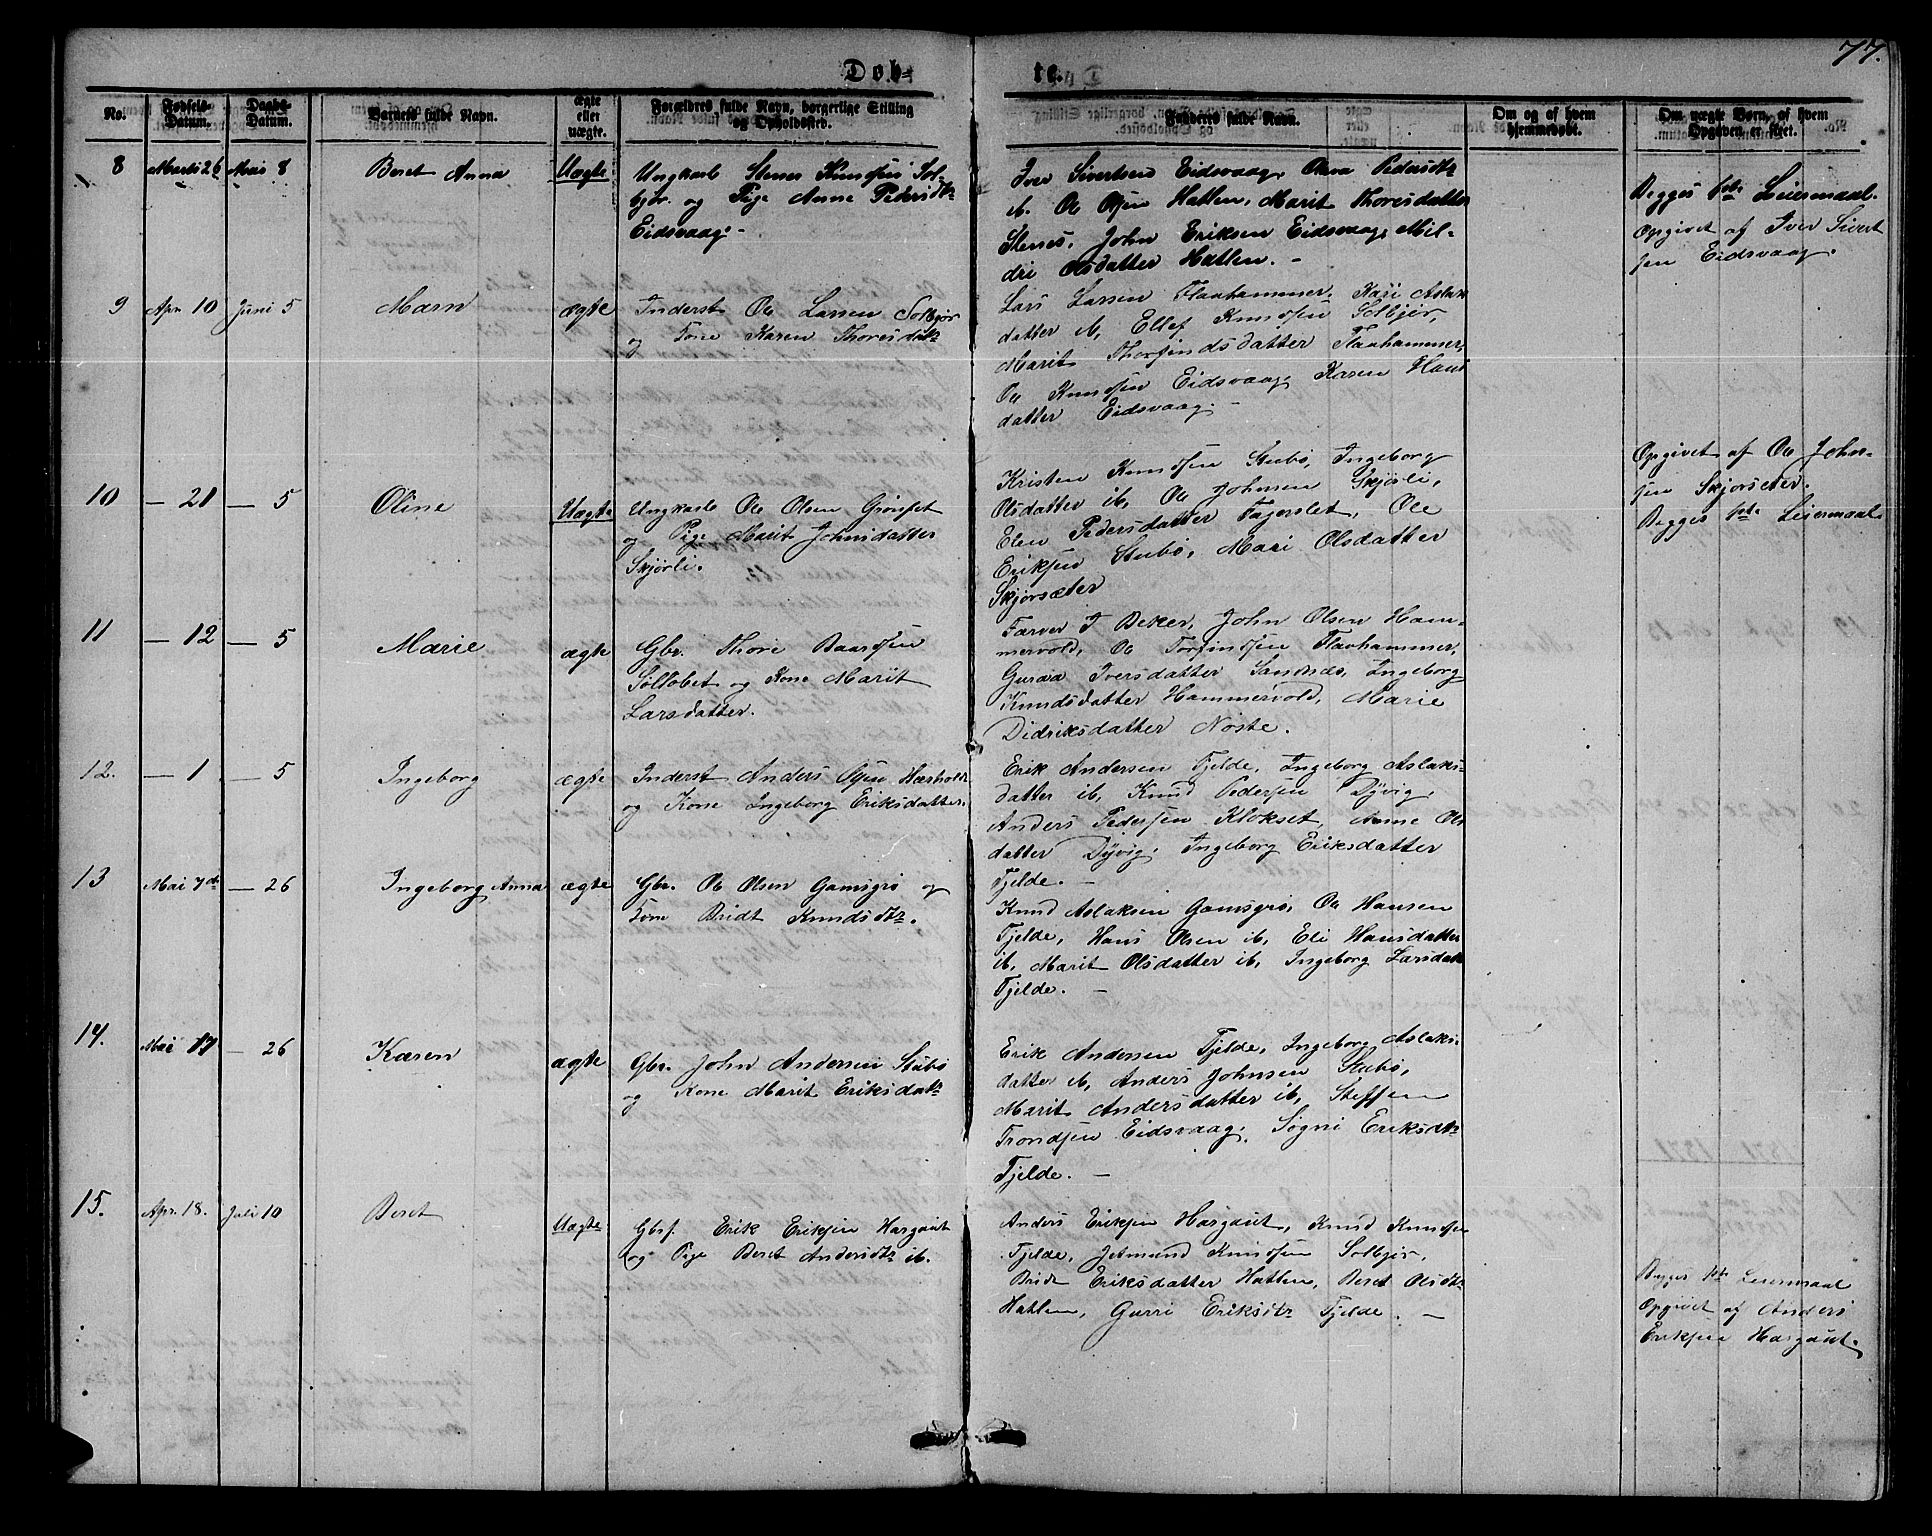 77.
Døb-
te.
No.
Fødsels-
Datum.
Daabs-
Datum.
Barnets fulde Navn.
ægte
eller
uægte.
Forældres fulde Navn, borgerlige Stilling
og Opholdssted.
Fadderes fulde Navn.
Om og af hvem
hjemmedøbt.
Om uægte Børn, af hvem
Opgaven er skeet.
8
Marts 26
Mai 8
Beret Anna
Uægte
Ungkarl Knudsen Sol-
bjør og Pige Anne Pedersdtr
Eidsvaag -
Iver Sivertsen Eidsvaag, Pedersdtr
ib, Ole Olsen Hatlen, Marit Thoresdatter
Stenes, John Eriksen Eidsvaag, Mil-
dri Olsdatter Hatlen. -
Begges 1ste Leiermaal.
Opgivet af Iver Sivert
sen Eidsvaag.
9
Apr. 10
Juni 5
Marn
ægte
Inderst Ole Larsen Solbjør
og Kone Karen Thoresdatr
Lars Larsen Flaahammer, Kari Aslak
datter ib, Ellef Knudsen Solbjør,
Marit Thorfindsdatter Flaahammer,
Ole Knudsen Eidsvaag, Karen Hans
datter Eidsvaag. -
10
— 21
— 5
Oline
Uægte
Ungkarl Ole Olsen Grønset
og Pige Marit Johnsdatter
Skjørli.
Kristen Knudsen Stubø, Ingeborg
Olsdatter ib, Ole Johnsen Skjørli,
Elen Pedersdatter Fagerslet, Ole
Eriksen Stubø, Mari Olsdatter
Skjørsæter
Opgivet af Ole John-
sen Skjørseter.
Begges 1ste Leiermaal
11
— 12
— 5
Marie
ægte
Gbr. Thore Baardsen
Solløbet og Kone Marit
Larsdatter.
Farver I Beker, John Olsen Ham-
mervold, Ole Torfinsen Flaahammer,
Guraa Iversdatter Sandnæs, Ingeborg
Knudsdatter Hammervold, Marie
Didriksdatter Nøste.
12.
— 1
— 5
Ingeborg
ægte
Inderst Anders Olsen
og Kone Ingeborg Eriksdatter.
Erik Andersen Tjelde, Ingeborg Aslaks-
datter ib, Knud Pedersen Dyvig,
Anders Pedersen Klokset, Anne Ols
datter Dyvig, Ingeborg Eriksdatter
Tjelde. -
13
Mai 7de
— 26
Ingeborg Anna
ægte
Gbr. Ole Olsen Gamsgrø og
Kone Bridt Knudsdtr.
Knud Aslaksen Gamsgrø, Ole Hansen
Tjelde, Hans Olsen ib, Eli Hansdatter
ib, Marit Olsdatter ib, Ingeborg Larsdatr
Tjelde. -
14.
Mai 17
— 26
Karen
ægte
Gbr. John Andersen Stubø
og Kone Marit Eriksdatr
Erik Andersen Tjelde, Ingeborg Aslaks-
datter ib, Anders Johnsen Stubø,
Marit Andersdatter ib, Steffen
Trondsen Eidsvaag, Søgni Eriksdtr
Tjelde. -
15.
Apr. 18.
Juli 10
Beret
Uægte
Gbrs. Erik Eriksen Hargaut
og Pige Beret Andersdtr ib.
Anders Eriksen Hargaut, Knud Knudsen
Tjelde, Jetmund Knudsen Solbjør,
Bridt Eriksdatter Hatlen, Beret Olsdtr
Hatlen, Gurri Eriksdtr Tjelde. -
Begges 1ste Leiermaal
Opgivet af Anders
Eriksen Hargaut.